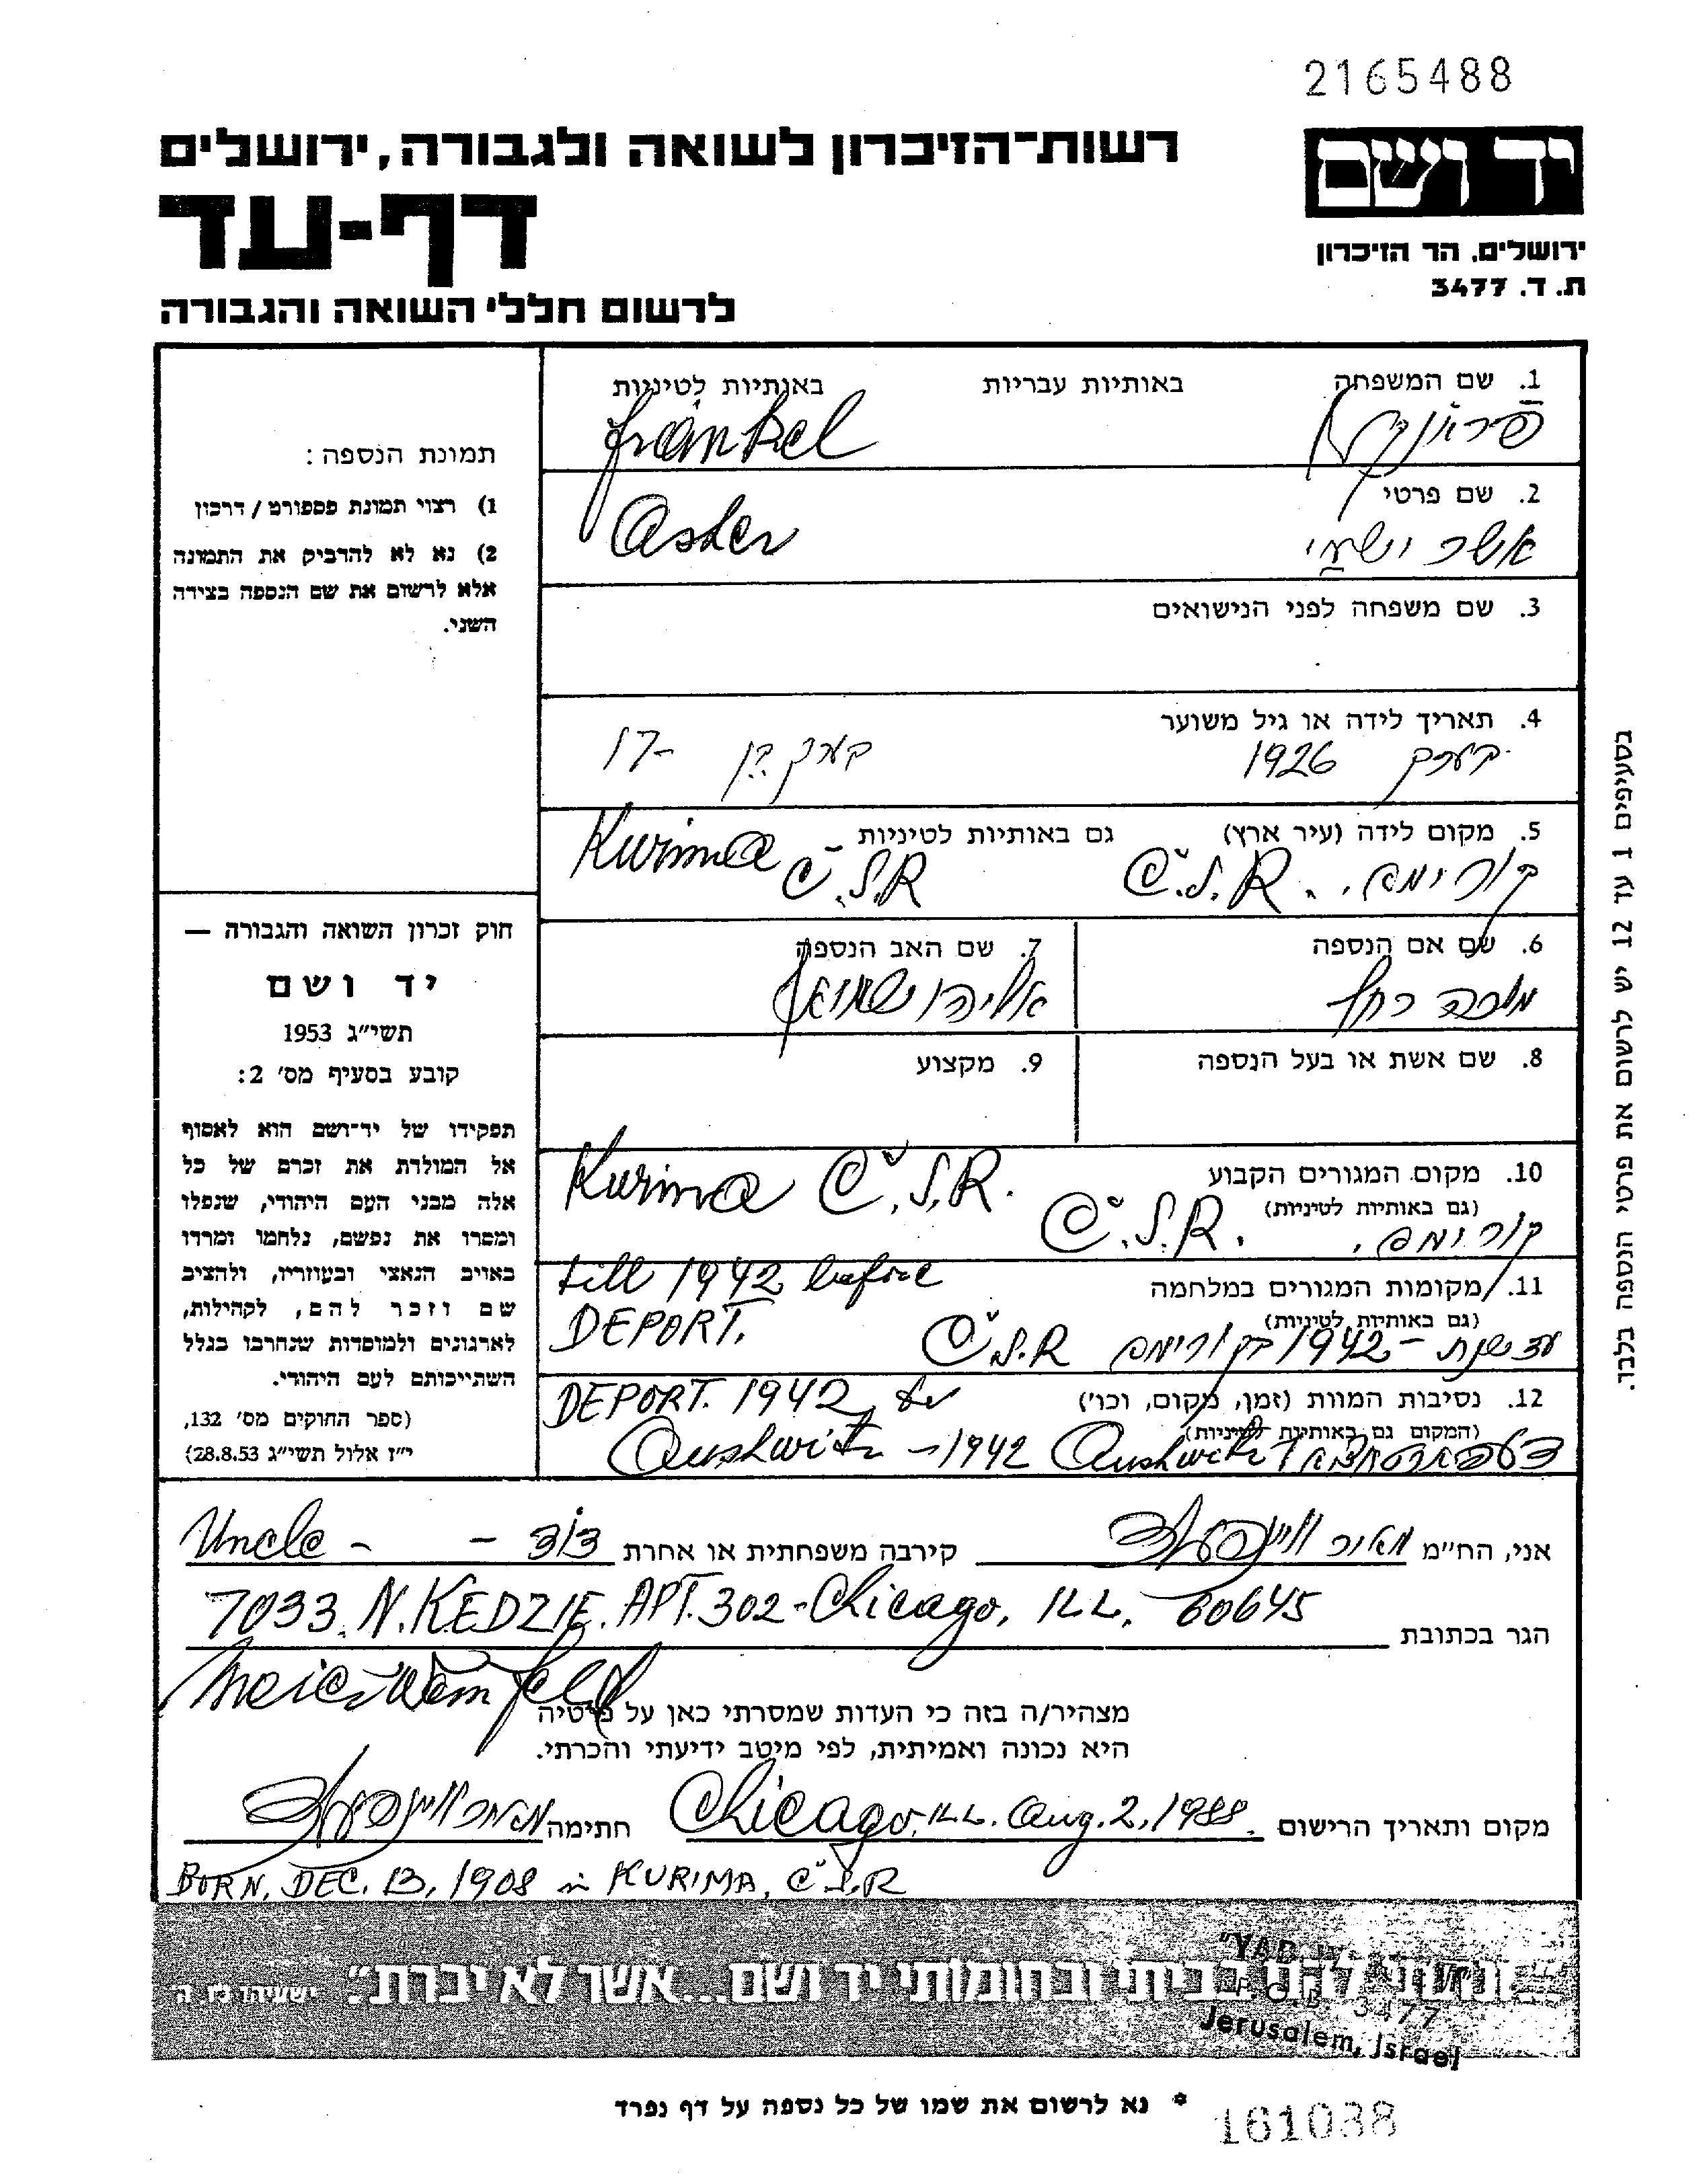 2165488
רשות-הזיכרון לשואה ולגבורה, ירושלים
יד ושם
דף-עד
ירושלים. הר הזיכרון
ת. ד. 3477
לרשום חללי השואה והגבורה
1. שם המשפחה באותיות עבריות באותיות לטיניות
Fränkel
2. שם פרטי
אשר ישעי Asher
3. שם משפחה לפני הנישואים
4. תאריך לידה או גיל משוער
1926 17-
5. מקום לידה (עיר ארץ) גם באותיות לטיניות
קורימא. Č.S.R. Kurima Č.S.R
6. שם אם הנספה
מלכה רחל
7. שם האב הנספה
אליהו שמואל
8. שם אשת או בעל הנספה
9. מקצוע
10. מקום המגורים הקבוע
(גם באותיות לטיניות)
קורימא. Č.S.R. Kurima Č.S.R.
11. מקומות המגורים במלחמה
(גם באותיות לטיניות)
עד שנת - 1942 קורימא Č.S.R till 1942 before
DEPORT.
12. נסיבות המוות (זמן, מקום, וכו')
(המקום גם באותיות לטיניות)
DEPORT. 1942 to
Aushwitz - 1942 Aushwitz
תמונת הנספה:
1) רצוי תמונת פספורט / דרכון
2) נא לא להדביק את התמונה
אלא לרשום את שם הנספה בצידה
השני.
חוק זכרון השואה והגבורה —
יד ושם
תשי״ג 1953
קובע בסעיף מס׳ 2:
תפקידו של יד־ושם הוא לאסוף
אל המולדת את זכרם של כל
אלה מבני העם היהודי, שנפלו
ומסרו את נפשם, נלחמו ומרדו
באויב הנאצי ובעוזריו, ולהציב
שם וזכר להם, לקהילות,
לארגונים ולמוסדות שנחרבו בגלל
השתייכותם לעם היהודי.
(ספר החוקים מס׳ 132,
י״ז אלול תשי״ג 28.8.53)
בסעיפים 1 עד 12 יש לרשום את פרטי הנספה בלבד.
אני, הח״מ מאיר וויינפעלד קירבה משפחתית או אחרת דוד - - Uncle
7033 N. KEDZIE. APT. 302 - Chicago, ILL. 60645
הגר בכתובת
Meier Weinfeld
מצהיר/ה בזה כי העדות שמסרתי כאן על פרטיה
היא נכונה ואמיתית, לפי מיטב ידיעתי והכרתי.
מקום ותאריך הרישום Chicago, ILL. Aug. 2, 1988. חתימה מאיר וויינפעלד
BORN, DEC. 13, 1908 in KURIMA, Č.S.R
"ונתתי להם בביתי ובחומותי יד ושם...אשר לא יכרת." ישעיהו נו, ה
Jerusalem, Israel
* נא לרשום את שמו של כל נספה על דף נפרד
161038